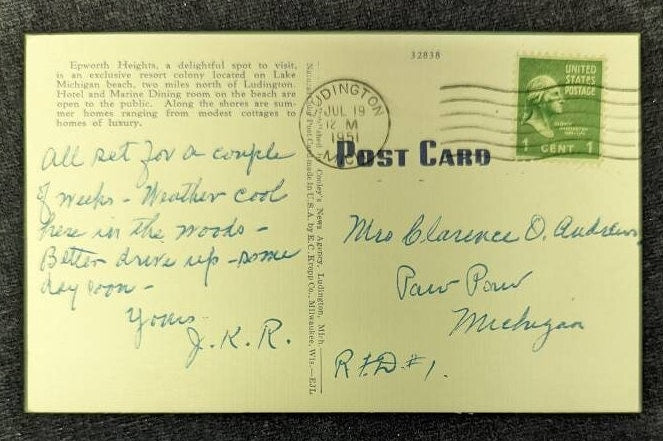 Epworth Heights, a delightful spot to visit,
is an exclusive resort colony located on Lake
Michigan beach, two miles north of Ludington.
Hotel and Marine Dining room on the beach are
open to the public. Along the shores are sum-
mer homes ranging from modest cottages to
homes of luxury.
All set for a couple
of weeks - Weather cool
here in the woods -
Better drive up - some
day soon -
Yours
J. K. R.
by Cooley's News Agency, Ludington, Mich.
Post Card made in U.S.A. by E. C. Kropp Co., Milwaukee, Wis.—EJL
32838
LUDINGTON
JUL 19
12 M
1951
MICH
UNITED
STATES
POSTAGE
1 CENT 1
POST CARD
Mrs Clarence O. Andrews
Paw Paw
Michigan
R.F.D. #1.